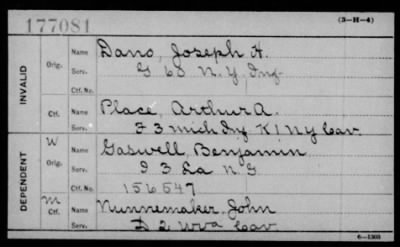 177081
(3-H-4)
INVALID
Orig.
Name Dano, Joseph H.
Serv. G 68 N.Y. Inf.
Ctf. No.
Ctf.
Name Place, Arthur A.
Serv. F 3 Mich Inf K 1 N Y Cav.
DEPENDENT
W
Orig.
Name Gaswell, Benjamin
Serv. I 3 La N G
Ctf. No. 156547
M
Ctf.
Name Nunnemaker, John
Serv. D 2 WVa Cav